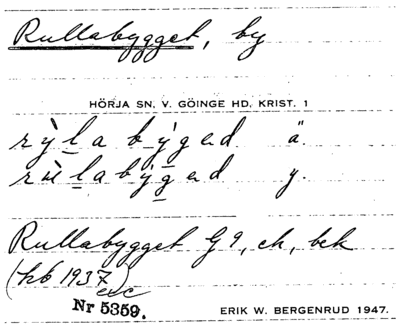 Rullabygget, by
HÖRJA SN, V. GÖINGE HD, KRIST. 1
rỳla bẏged ä.
rùlabẏged y.
Rullabygget G 9, ek, bek
(kb 1937)
Nr 5359.
ERIK W. BERGENRUD 1947.